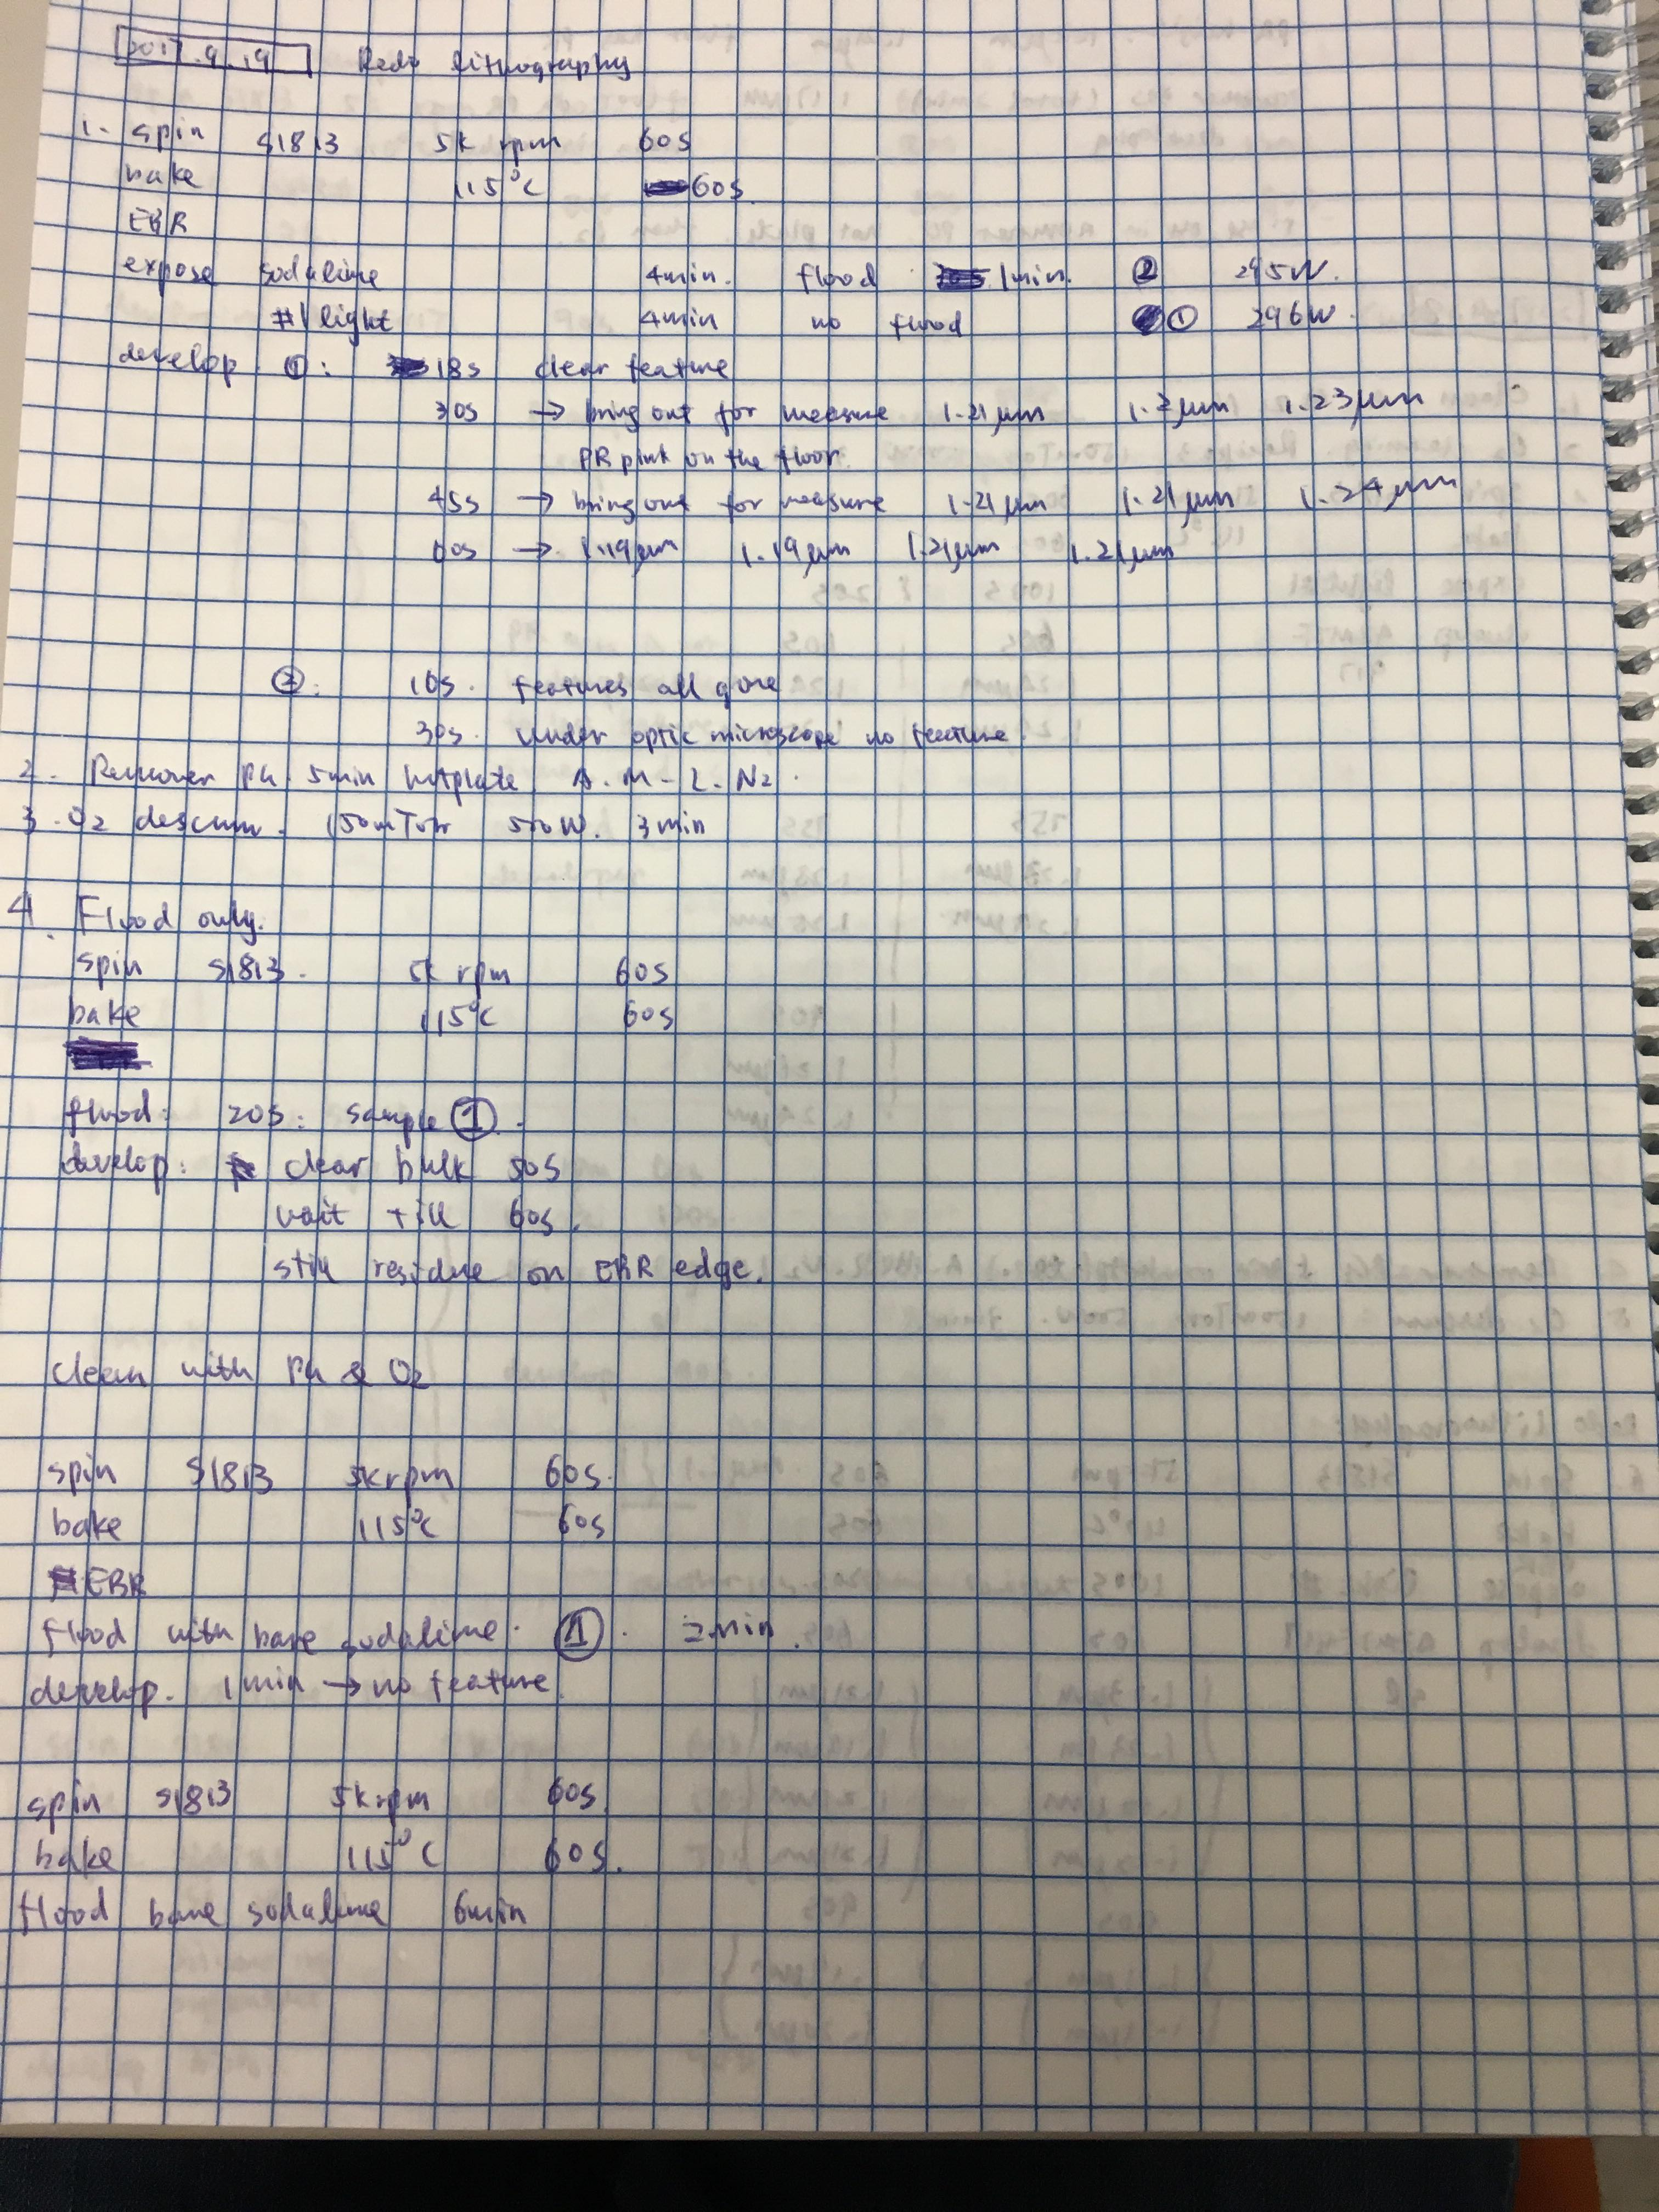 2017.9.19 Redo lithography
1. spin S1813 5k rpm 60s
bake 115°C 60s
EBR
expose sodalime 4min. flood 1min. ② 295W.
#1 light 4min no flood ① 296W.
develop ①: 18s clear feature
30s → bring out for measure 1.21μm 1.2μm 1.23μm
PR pink on the floor.
45s → bring out for measure 1.21μm 1.21μm 1.24μm
60s → 1.19μm 1.19μm 1.21μm 1.21μm
②: 10s. features all gone
30s. under optic microscope no feature.
2. Remover PG 5min hotplate A.M-L.N2.
3. O2 descum. 150mTorr 500W. 3min
4. Flood only.
spin S1813. 5k rpm 60s
bake 115°C 60s
flood: 20s: sample ①.
develop: clear bulk 50s
wait till 60s.
still residue on EBR edge.
clean with PG & O2
spin S1813 5krpm 60s.
bake 115°C 60s
EBR
flood with bare sodalime. ①. 2min.
develop. 1min → no feature.
spin S1813 5krpm 60s.
bake 115°C 60s.
flood bare sodalime 6min